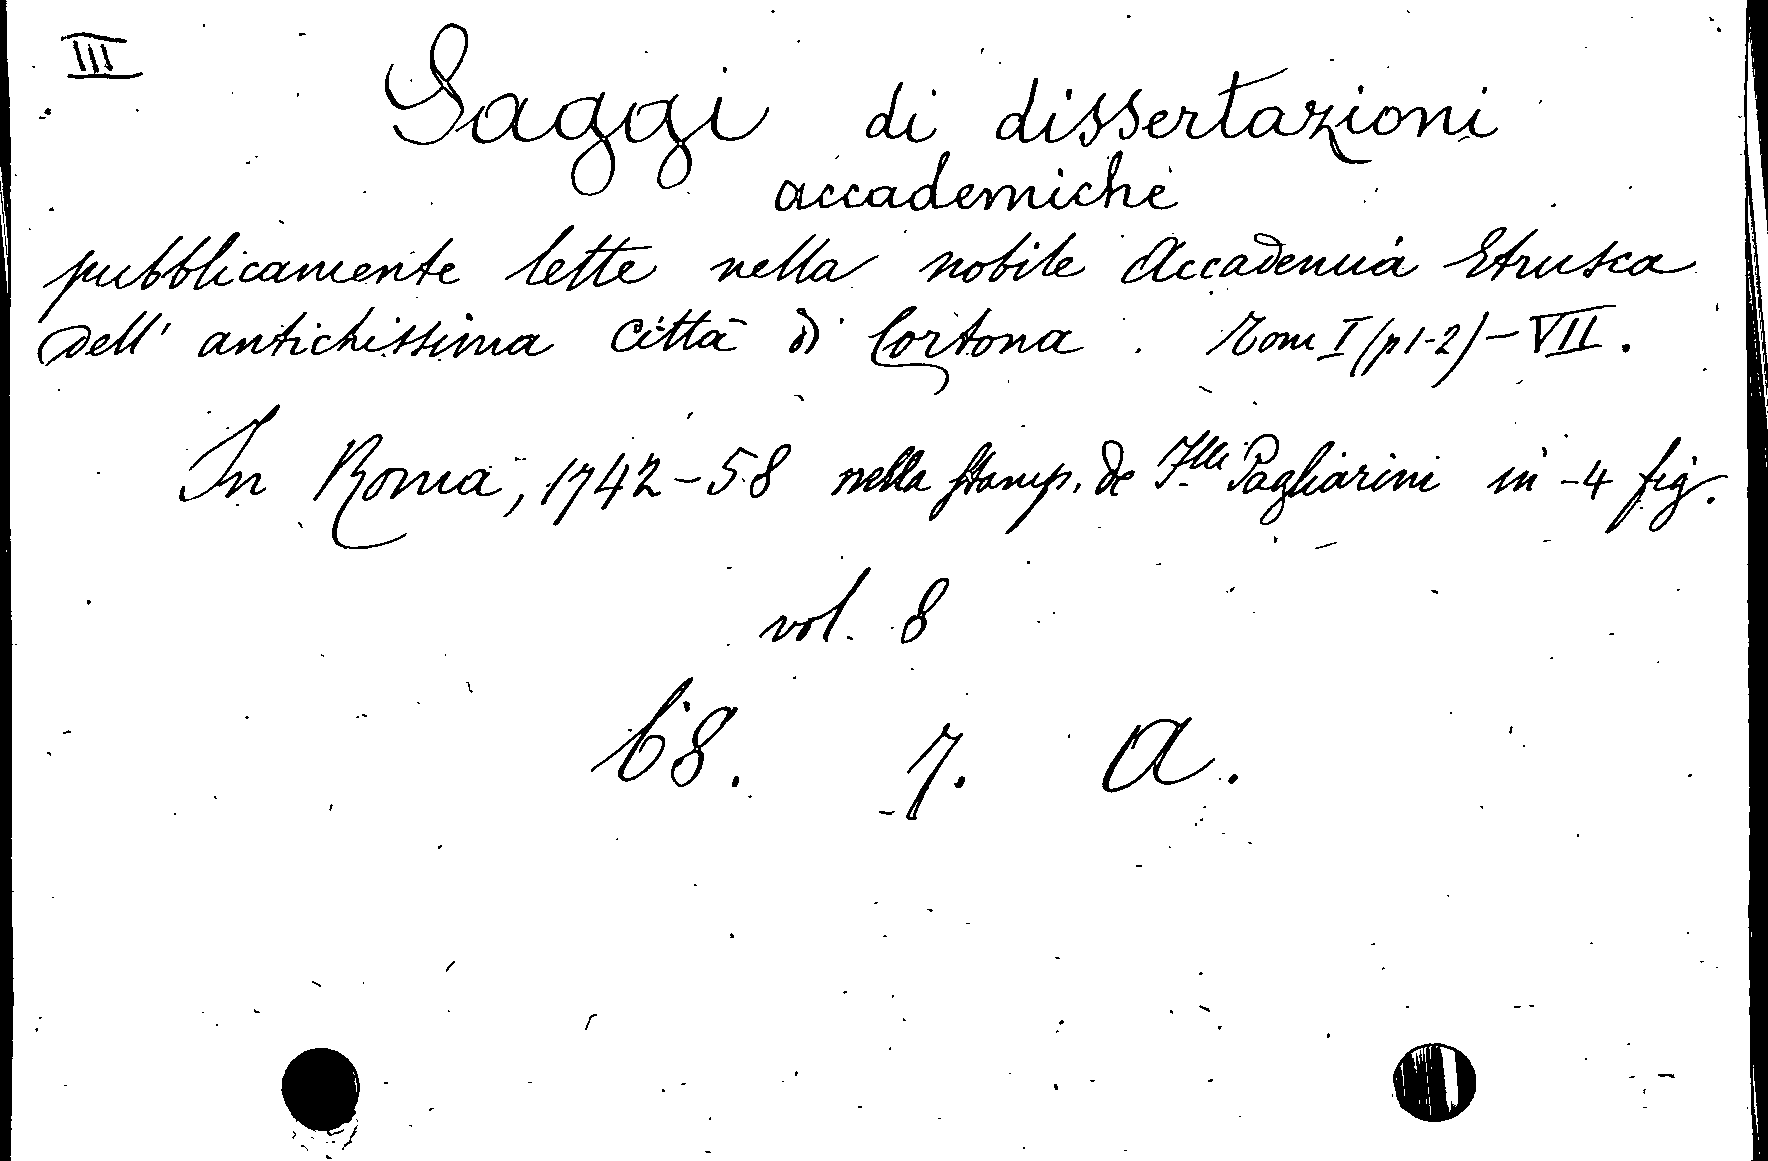 III
Saggi di dissertazioni
accademiche
pubblicamente lette nella nobile Accademia Etrusca
dell' antichissima città di Cortona. Tom I (p 1-2) - VII.
In Roma, 1742-58 nella stamp. de Flli Pagliarini in-4 fig.
vol. 8
68. 7. a.